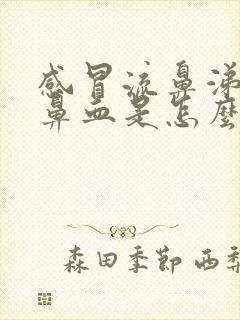 感冒流鼻涕
鼻血是怎麼
森田季節 西梨